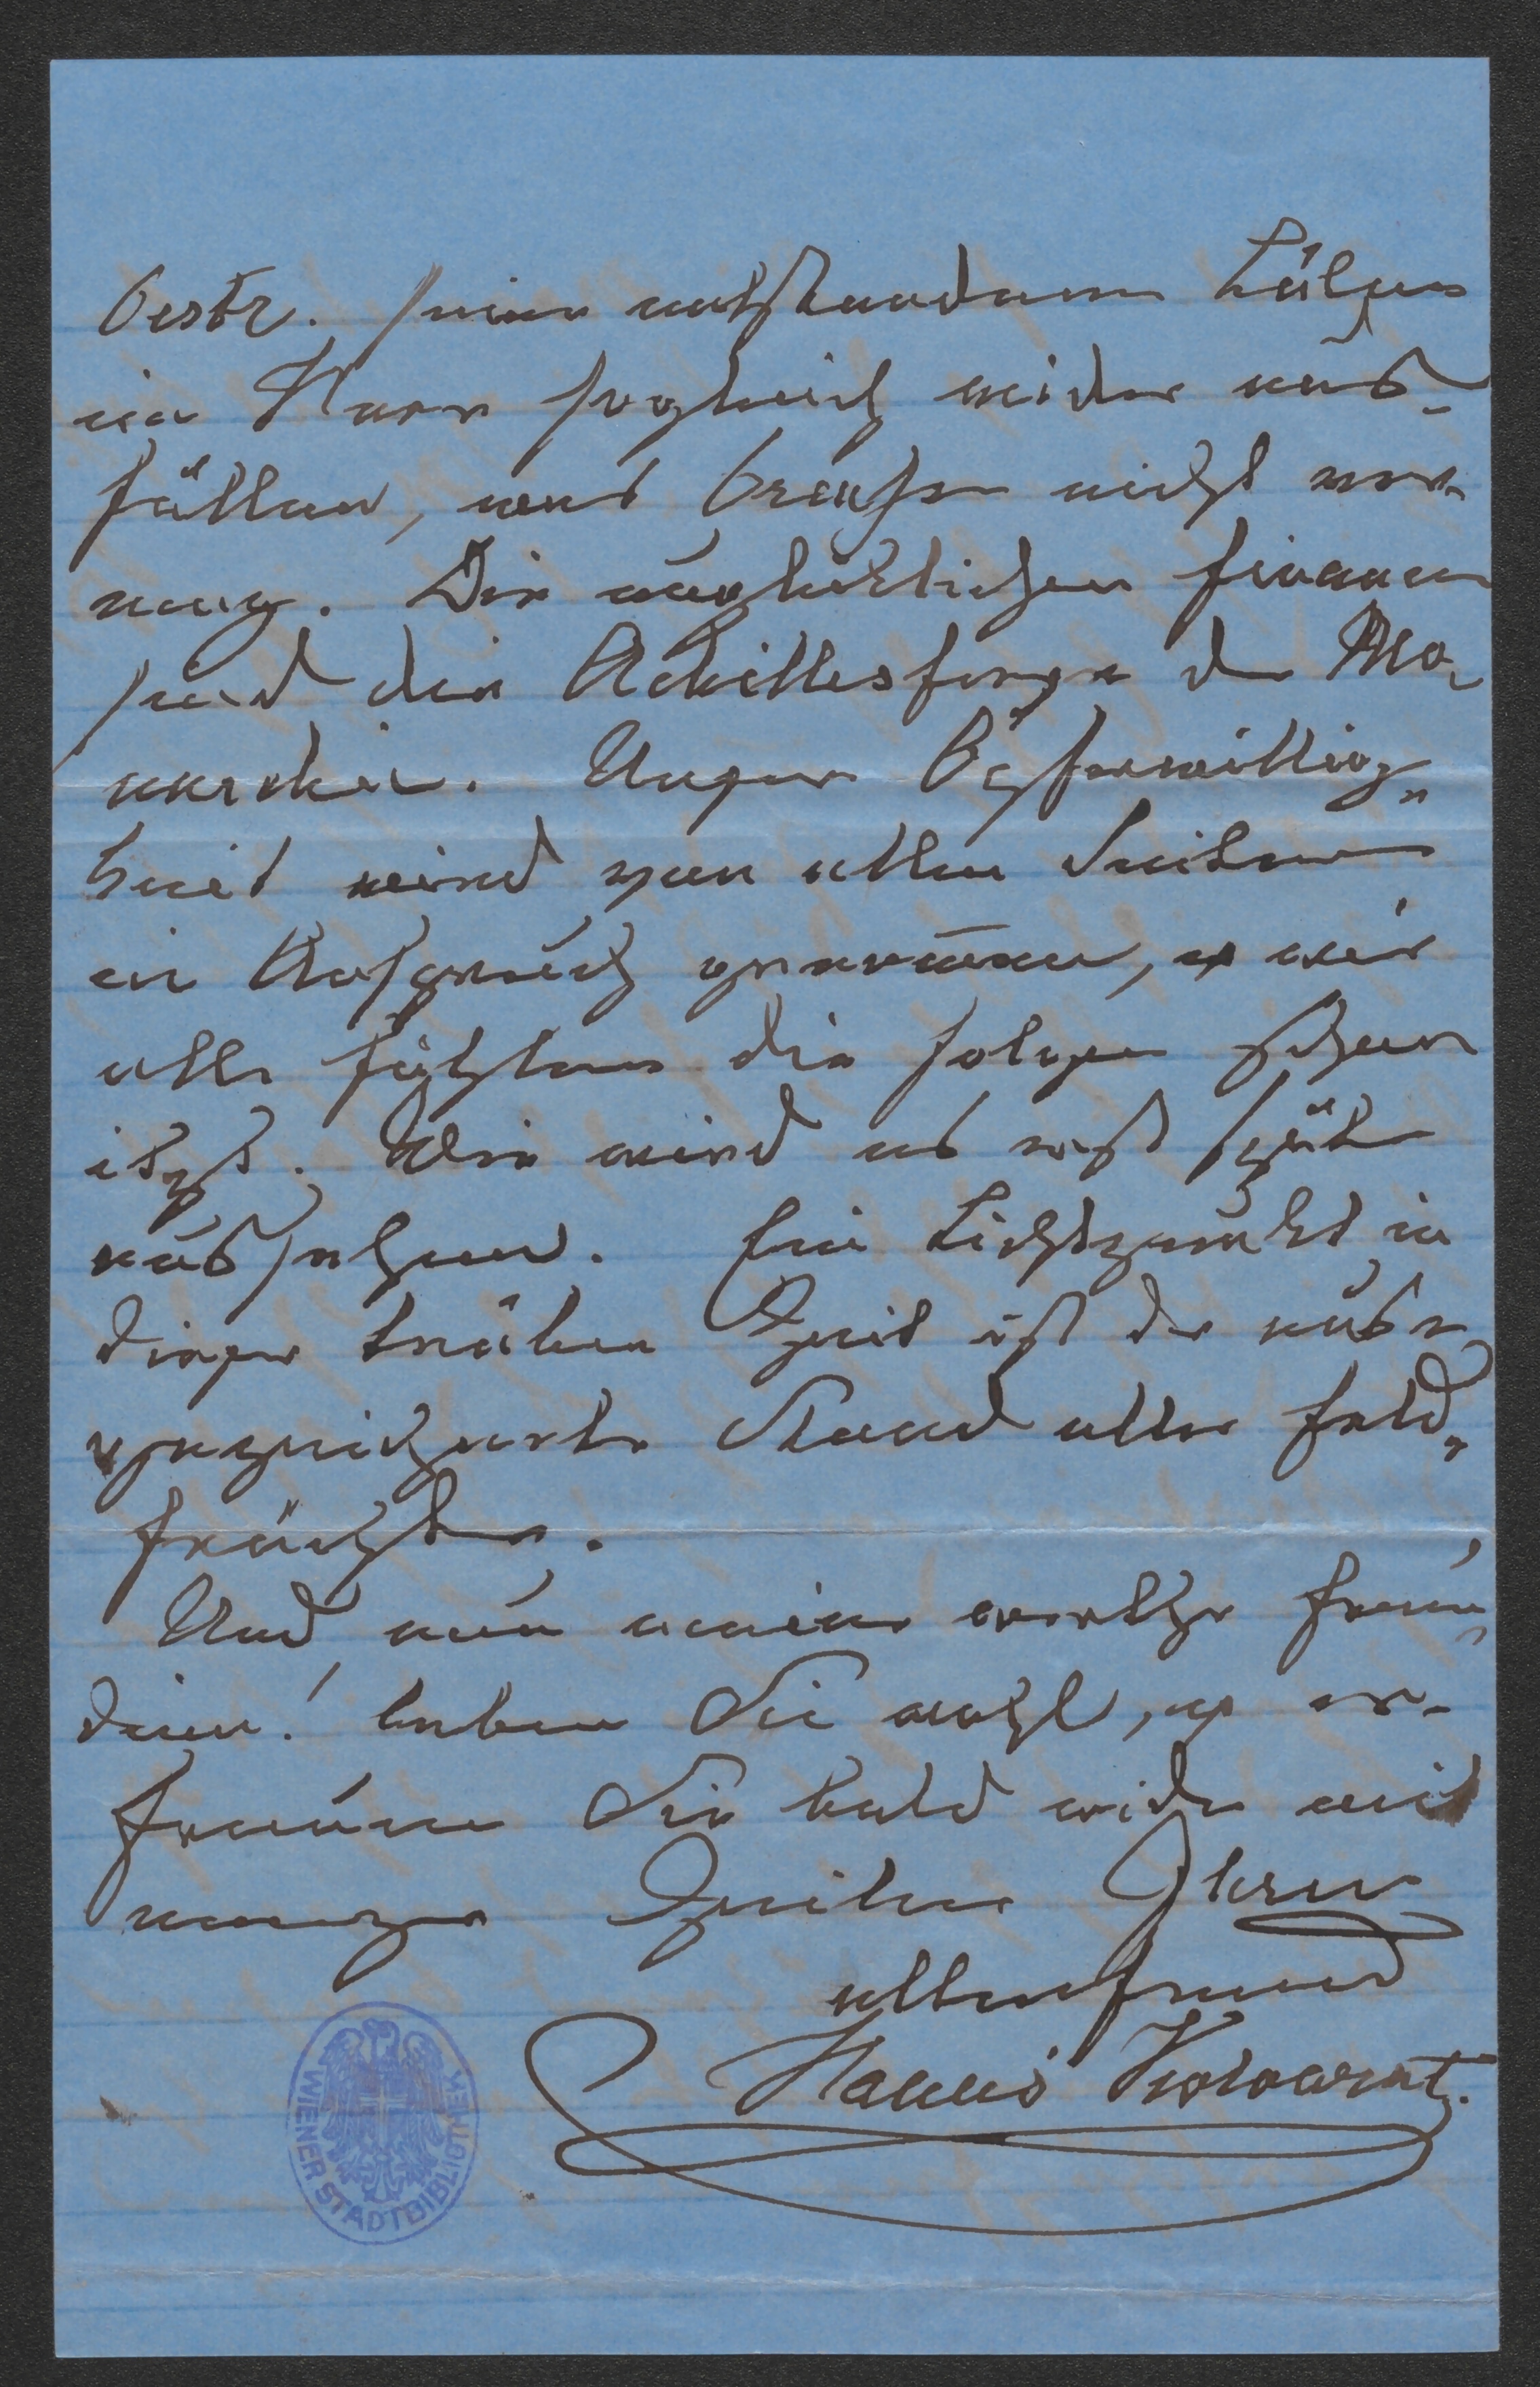 Oestr. seine entstandenen Lüken
im Heere sogleich wieder aus-
füllen, was Preußen nicht ver-
mag. Die unglüklichen Finanzen
sind die Achillesferse der Mo-
narchie. Unsere Opferwillig-
keit wird von allen Seiten
in Anspruch genom̄en, u wir
alle fühlen die Folgen schon
itzt. Wie wird es erst später
aussehen. Ein Lichtpunkt in
dieser trüben Zeit ist der aus-
gezeichnete Stand aller Feld-
früchte.
Und nun meine werthe Freun-
din! leben Sie wohl, u er-
freuen Sie bald wieder mit
einigen Zeilen Ihren
alten Freund
Hanns Kolowrat.
WIENER STADTBIBLIOTHEK